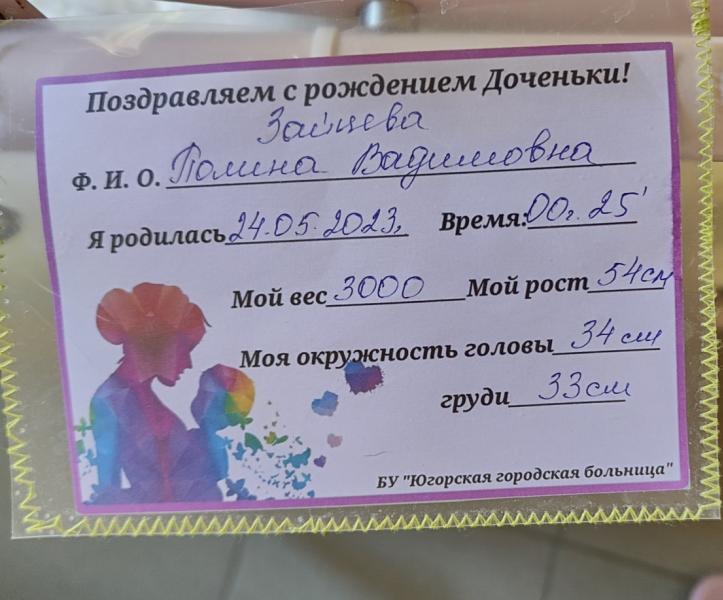 Поздравляем с рождением Доченьки!
Зайцева
Ф. И. О. Полина Вадимовна
Я родилась 24.05.2023. Время: 00г. 25'
Мой вес 3000 Мой рост 54см
Моя окружность головы 34 см
груди 33см
БУ "Югорская городская больница"